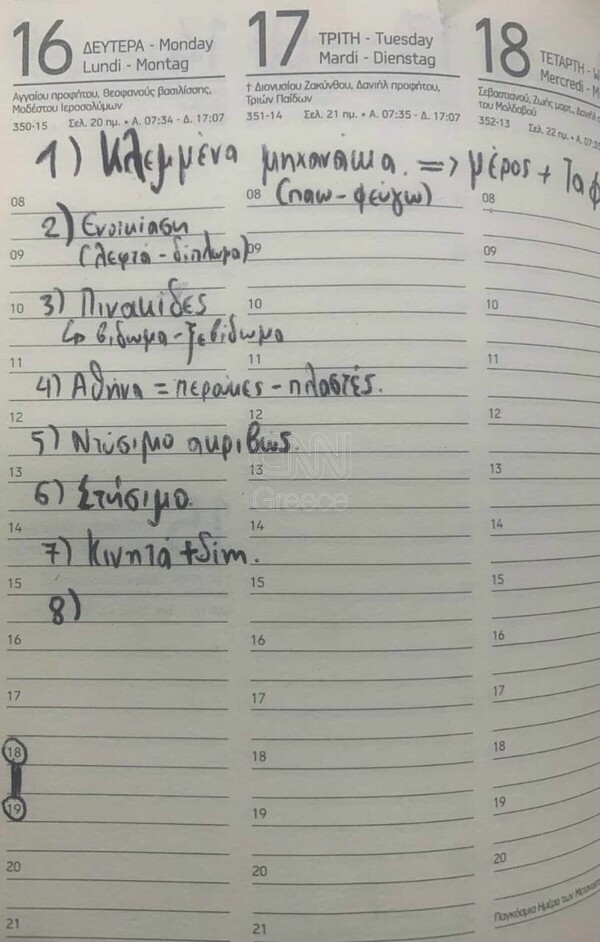 16 ΔΕΥΤΕΡΑ - Monday
Lundi - Montag
Αγγαίου προφήτου, Θεοφανούς βασιλίσσης,
Μοδέστου Ιεροσολύμων
350-15 Σελ. 20 ημ. • Α. 07:34 - Δ. 17:07
17 ΤΡΙΤΗ - Tuesday
Mardi - Dienstag
† Διονυσίου Ζακύνθου, Δανιήλ προφήτου,
Τριών Παίδων
351-14 Σελ. 21 ημ. • Α. 07:35 - Δ. 17:07
18 ΤΕΤΑΡΤΗ - W
Mercredi - M
Σεβαστιανού, Ζωής μαρτ., Δανιήλ
του Μολδαβού
352-13 Σελ. 22 ημ. • Α. 07:35
1) Κλεμμένα μηχανάκια. => μέρος + Τα φ
08 08 (παω - φεύγω) 08
2) Ενοικίαση
09 (λεφτά - δίπλωμα) 09 09
10 3) Πινακίδες 10 10
↳ βίδωμα - ξεβίδωμα
11 11 11
4) Αθήνα = περαιες - πλαστές.
12 12 12
5) Ντύσιμο ακριβώς.
CNN
13 13 13
6) Στήσιμο.
Greece
14 14 14
7) Κινητά + Sim.
15 15 15
8)
16 16 16
17 17 17
18 18 18
19 19 19
20 20 20
Παγκόσμια Ημέρα των
21 21